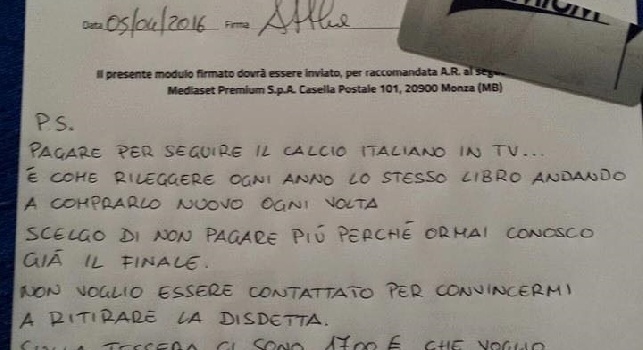 Data 05/04/2016 Firma
MIUM
Il presente modulo firmato dovrà essere inviato, per raccomandata A.R. al
Mediaset Premium S.p.A. Casella Postale 101, 20900 Monza (MB)
PS.
PAGARE PER SEGUIRE IL CALCIO ITALIANO IN TV...
È COME RILEGGERE OGNI ANNO LO STESSO LIBRO ANDANDO
A COMPRARLO NUOVO OGNI VOLTA
SCELGO DI NON PAGARE PIÚ PERCHÉ ORMAI CONOSCO
GIÀ IL FINALE.
NON VOGLIO ESSERE CONTATTATO PER CONVINCERMI
A RITIRARE LA DISDETTA.
SULLA TESSERA CI SONO 17,00 € CHE VOGLIO